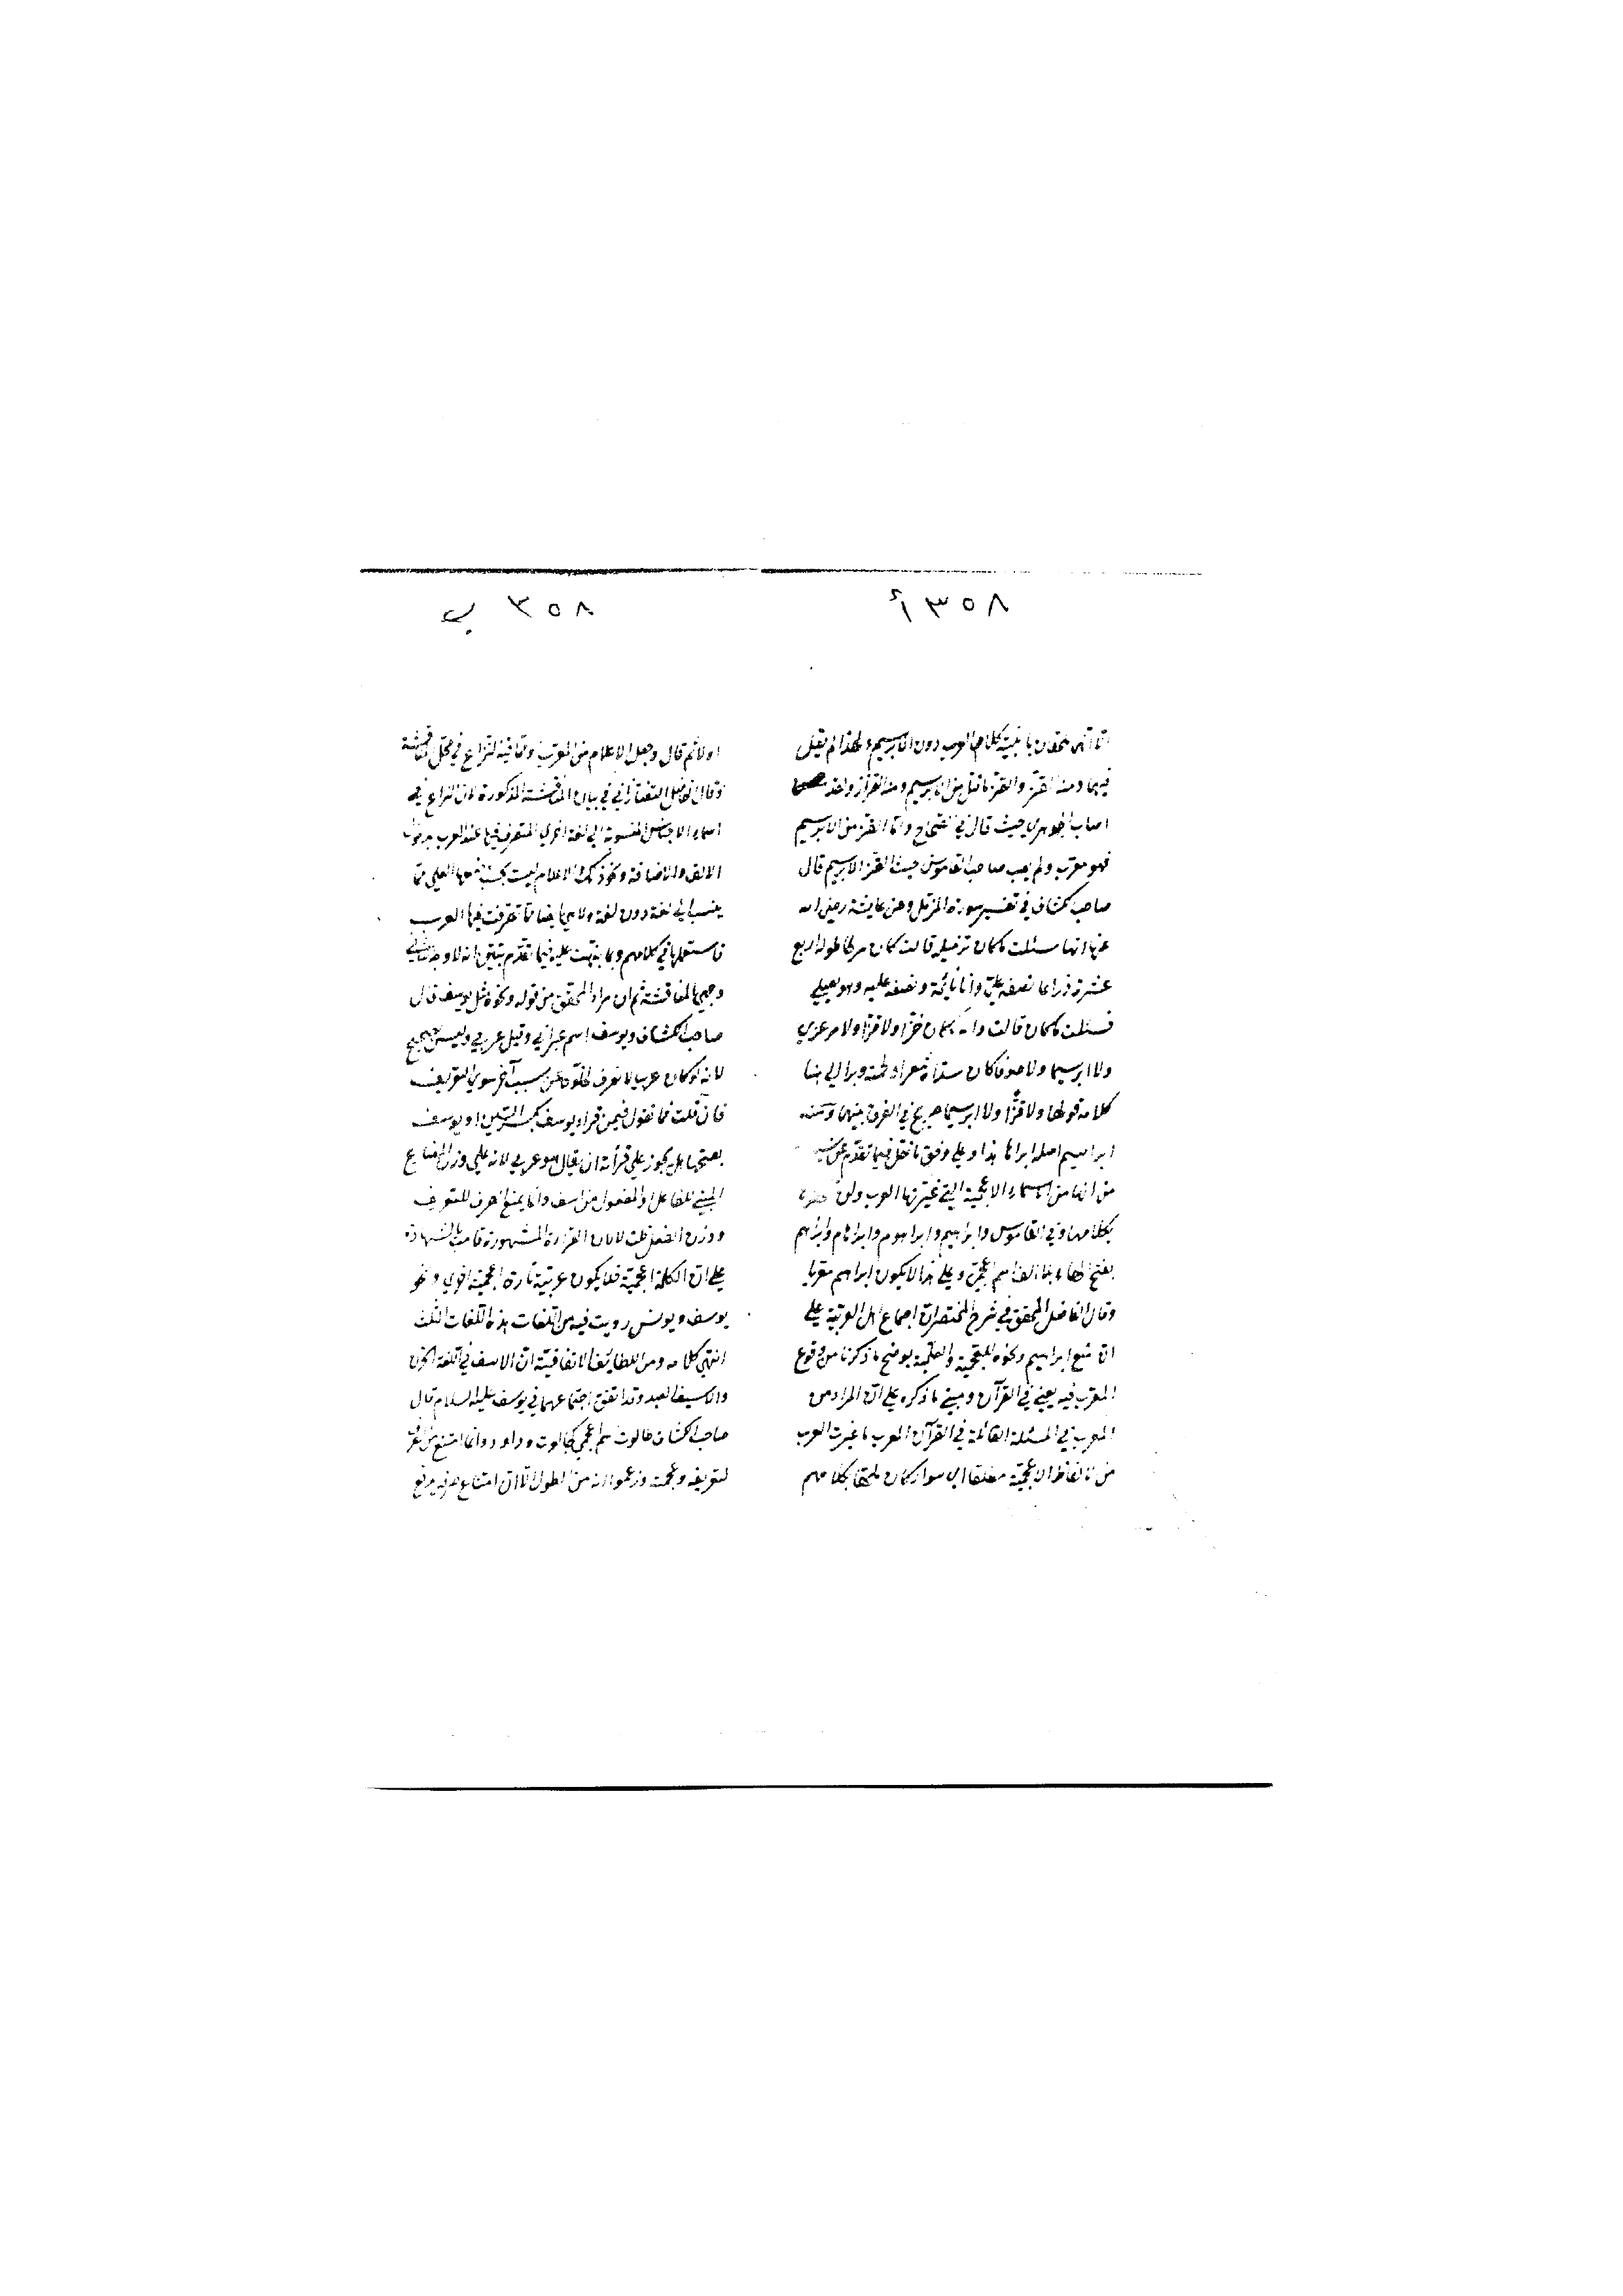 ٣٥٨ أ
انهما ملحقان بابنية كلام العرب دون الابريسم ولهذا لم يقل
فيهما ومنه القز والقز ما نتل من الابريسم ومنه القزاز وقد
اصاب الجوهري حيث قال في الصحاح واما القز من الابريسم
فهو معرب ولم يصب صاحب القاموس حيث القز الابريسم قال
صاحب الكشاف في تفسير سورة المزمل وعن عايشة رضي الله
عنها انها سئلت ما كان تزميله قالت كان مرطا طوله اربع
عشرة ذراعا نصفه علي وانا نائمة ونصفه عليه وهو يصلي
فسئلت ما كان قالت والله ما كان خزا ولا قزا ولا مرعزي
ولا ابريسما ولا صوفا كان سداه شعرا ولحمته وبرا الي هنا
كلامه قولها ولا قزا ولا ابريسما صريح في الفرق بينهما ومنه
ابراهيم اصله ابراها هذا وعلي وفق ما نقل فيما تقدم عن
من انها من الاسماء الاعجمية التي غيرتها العرب ولم
بكلامها وفي القاموس وابراهيم وابراهوم وابراهام وابرهم
بفتح الهاء بلا الف اسم اعجمي وعلي هذا لا يكون ابراهم معربا
وقال الفاضل المحقق في شرح المختصر ان اجماع اهل العربية علي
ان منع ابراهيم ونحوه للعجمة والعلمية يوضح ما ذكرنا من وقوع
المعرب فيه يعني في القرآن ومبني ما ذكره علي ان المراد من
المعرب في المسئلة القائلة في القرآن المعرب ما غيرت العرب
من الالفاظ الاعجمية مطلقا اي سواء كان ملحقا بكلامهم
٣٥٨ ب
اولا ثم قال وجعل الاعلام من المعرب وما فيه النزاع في محل المناقشة
وقال الفاضل التفتازاني في بيان المناقشة المذكورة لان النزاع في
اسماء الاجناس المنسوبة الي لغة اخري المتصرف فيها عند العرب بدخول
الالف والاضافة ونحو ذلك الاعلام ليست بحسب وضعها العلمي مما
ينسب الي لغة دون لغة ولا هي ايضا مما تصرفت فيها العرب
فاستعملها في كلامهم وبما نبهت عليه فيما تقدم تبين انه لا وجه
وجهي المناقشة ثم ان مراد المحقق من قوله ونحوه مثل يوسف قال
صاحب الكشاف ويوسف اسم عبراني وقيل عربي وليس بصحيح
لانه لو كان عربيا لانصرف لخلوه عن سبب آخر سوي التعريف
فان قلت فما تقول فيمن قرأ يوسف بكسر السين او يوسف
بفتحها هل يجوز علي قرأته ان يقال هو عربي لانه علي وزن المضارع
المبني للفاعل او المفعول من اسف وانما يمنع الصرف للتعريف
ووزن الفعل قلت لا لان القراءة المشهورة قامت بالشهادة
علي ان الكلمة اعجمية فلا يكون عربية تارة اعجمية اخري ونحو
يوسف ويونس رويت فيه من اللغات هذه اللغات الثلث
انتهي كلامه ومن اللطايف الاتفاقية ان الاسف في اللغة الحزن
والاسيف العبد وقد اتفق اجتماعهما في يوسف عليه السلام قال
صاحب الكشاف طالوت اسم اعجمي كجالوت وداود وانما امتنع من الصرف
لتعريفه وعجمته وزعموا انه من الطول الا ان امتناع صرفه يدفع